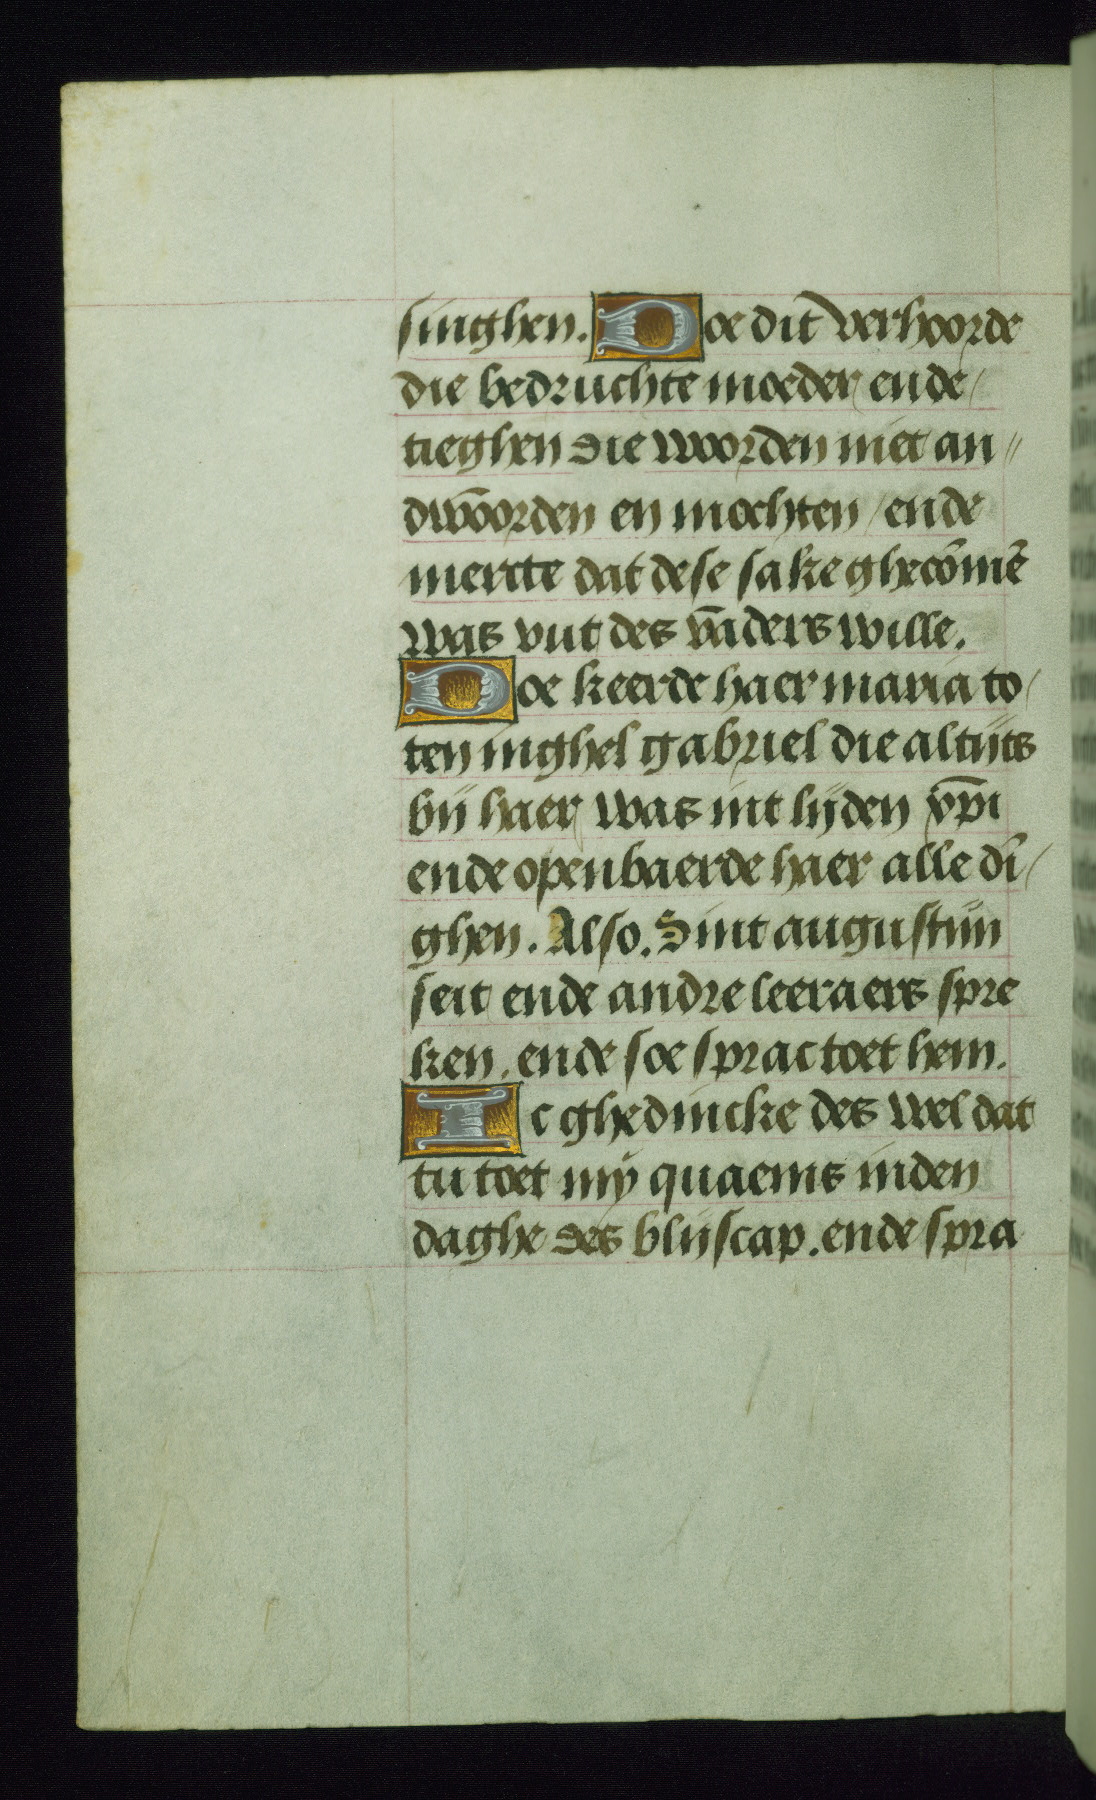 singhen. Doe dit verhoorde
die bedruchte moeder ende
tieghen die woorden niet an
dwoorden en mochten / ende
mercte dat dese sake ghecōmē
was vut des vaders wille.
Doe keerde haer maria to
ten inghel gabriel die altijts
bij haer was int lijden xp̄i
ende openbaerde haer alle dī
ghen. Also. Sint augustijn
seit ende andre leeraers spre
ken. ende soe sprac toet hem.
Ic ghedincke des wel dat
tu toet mÿ quaems inden
daghe des blijscap. ende spra